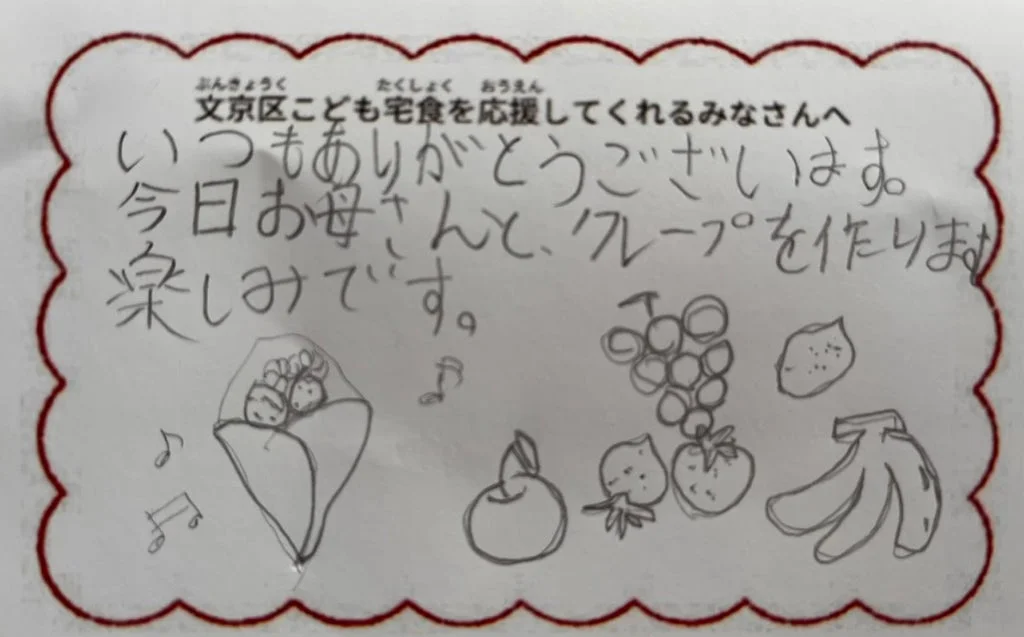 ぶんきょうく たくしょく おうえん
文京区こども宅食を応援してくれるみなさんへ
いつもありがとうございます。
今日お母さんと、クレープを作ります
楽しみです。